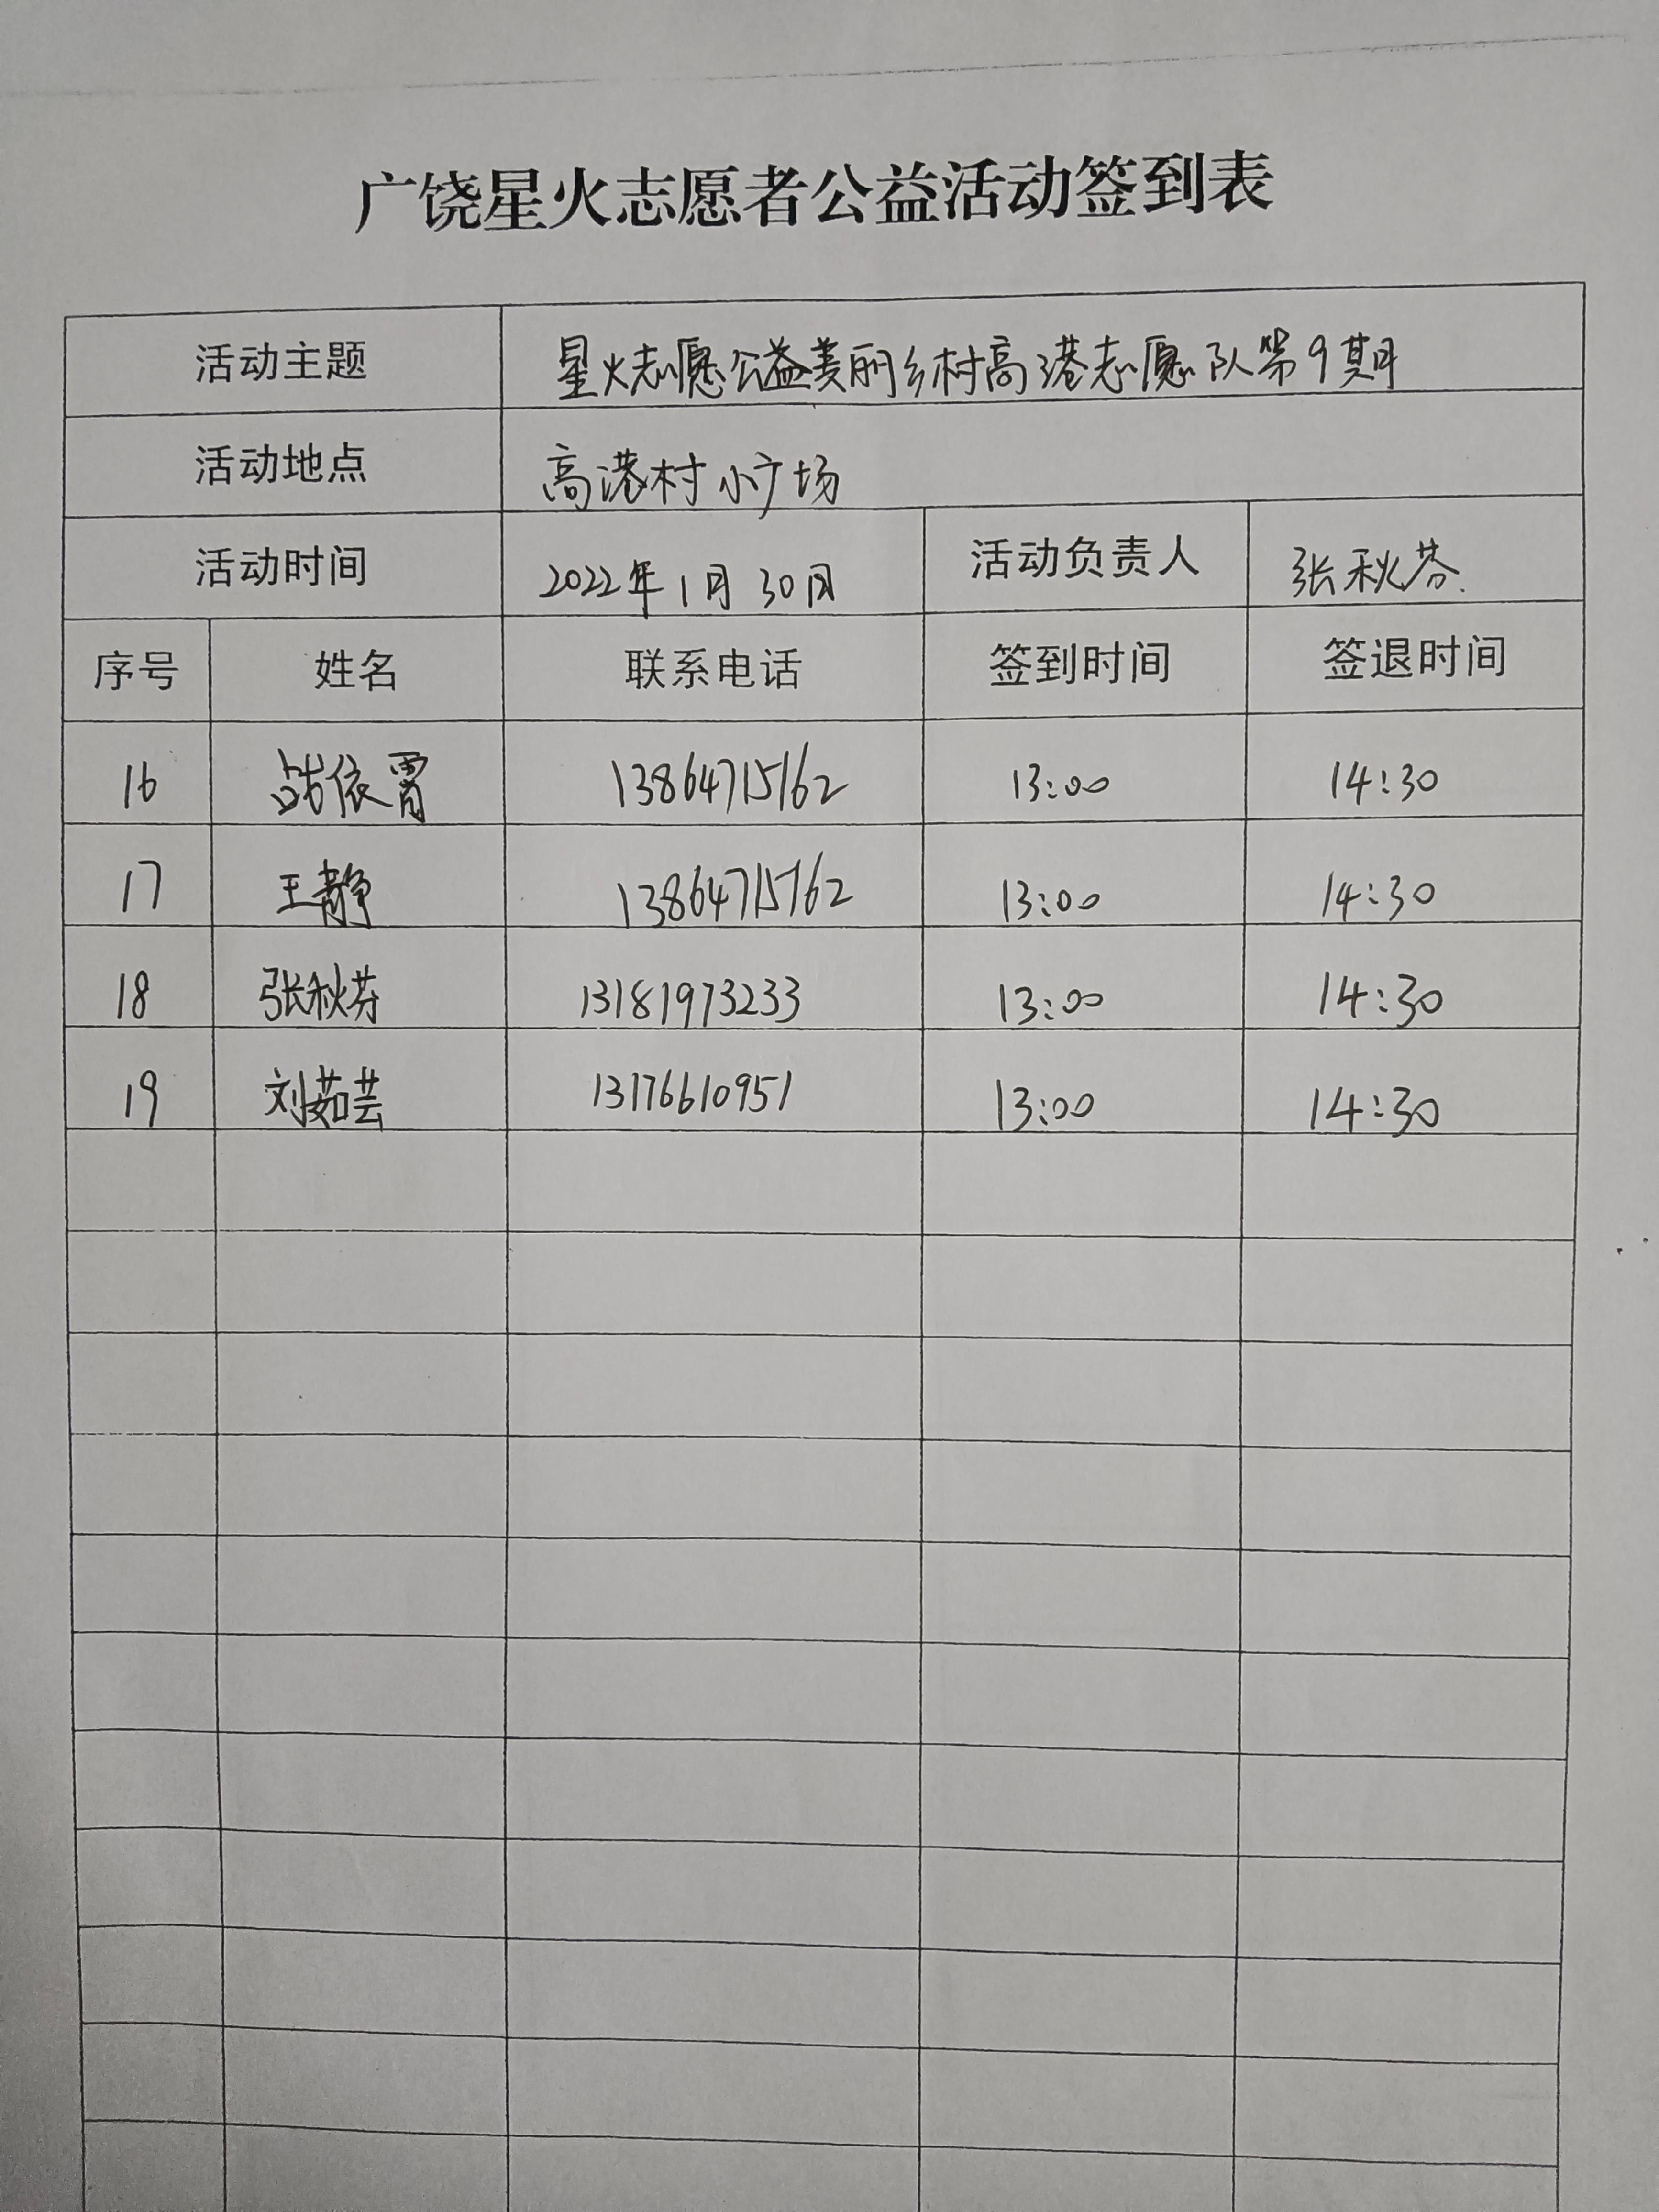 广饶星火志愿者公益活动签到表
活动主题 星火志愿公益美丽乡村高港志愿队第9期
活动地点 高港村小广场
活动时间 2022年1月30日 活动负责人 张秋芬
序号 姓名 联系电话 签到时间 签退时间
16 战依霄 13864715162 13:00 14:30
17 王静 13864715162 13:00 14:30
18 张秋芬 13181973233 13:00 14:30
19 刘茹芸 13176610951 13:00 14:30